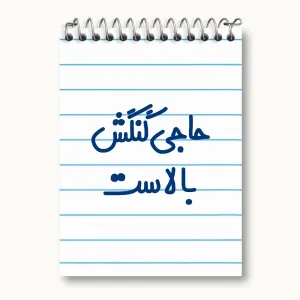 حاجی گَنگَش
بالاست